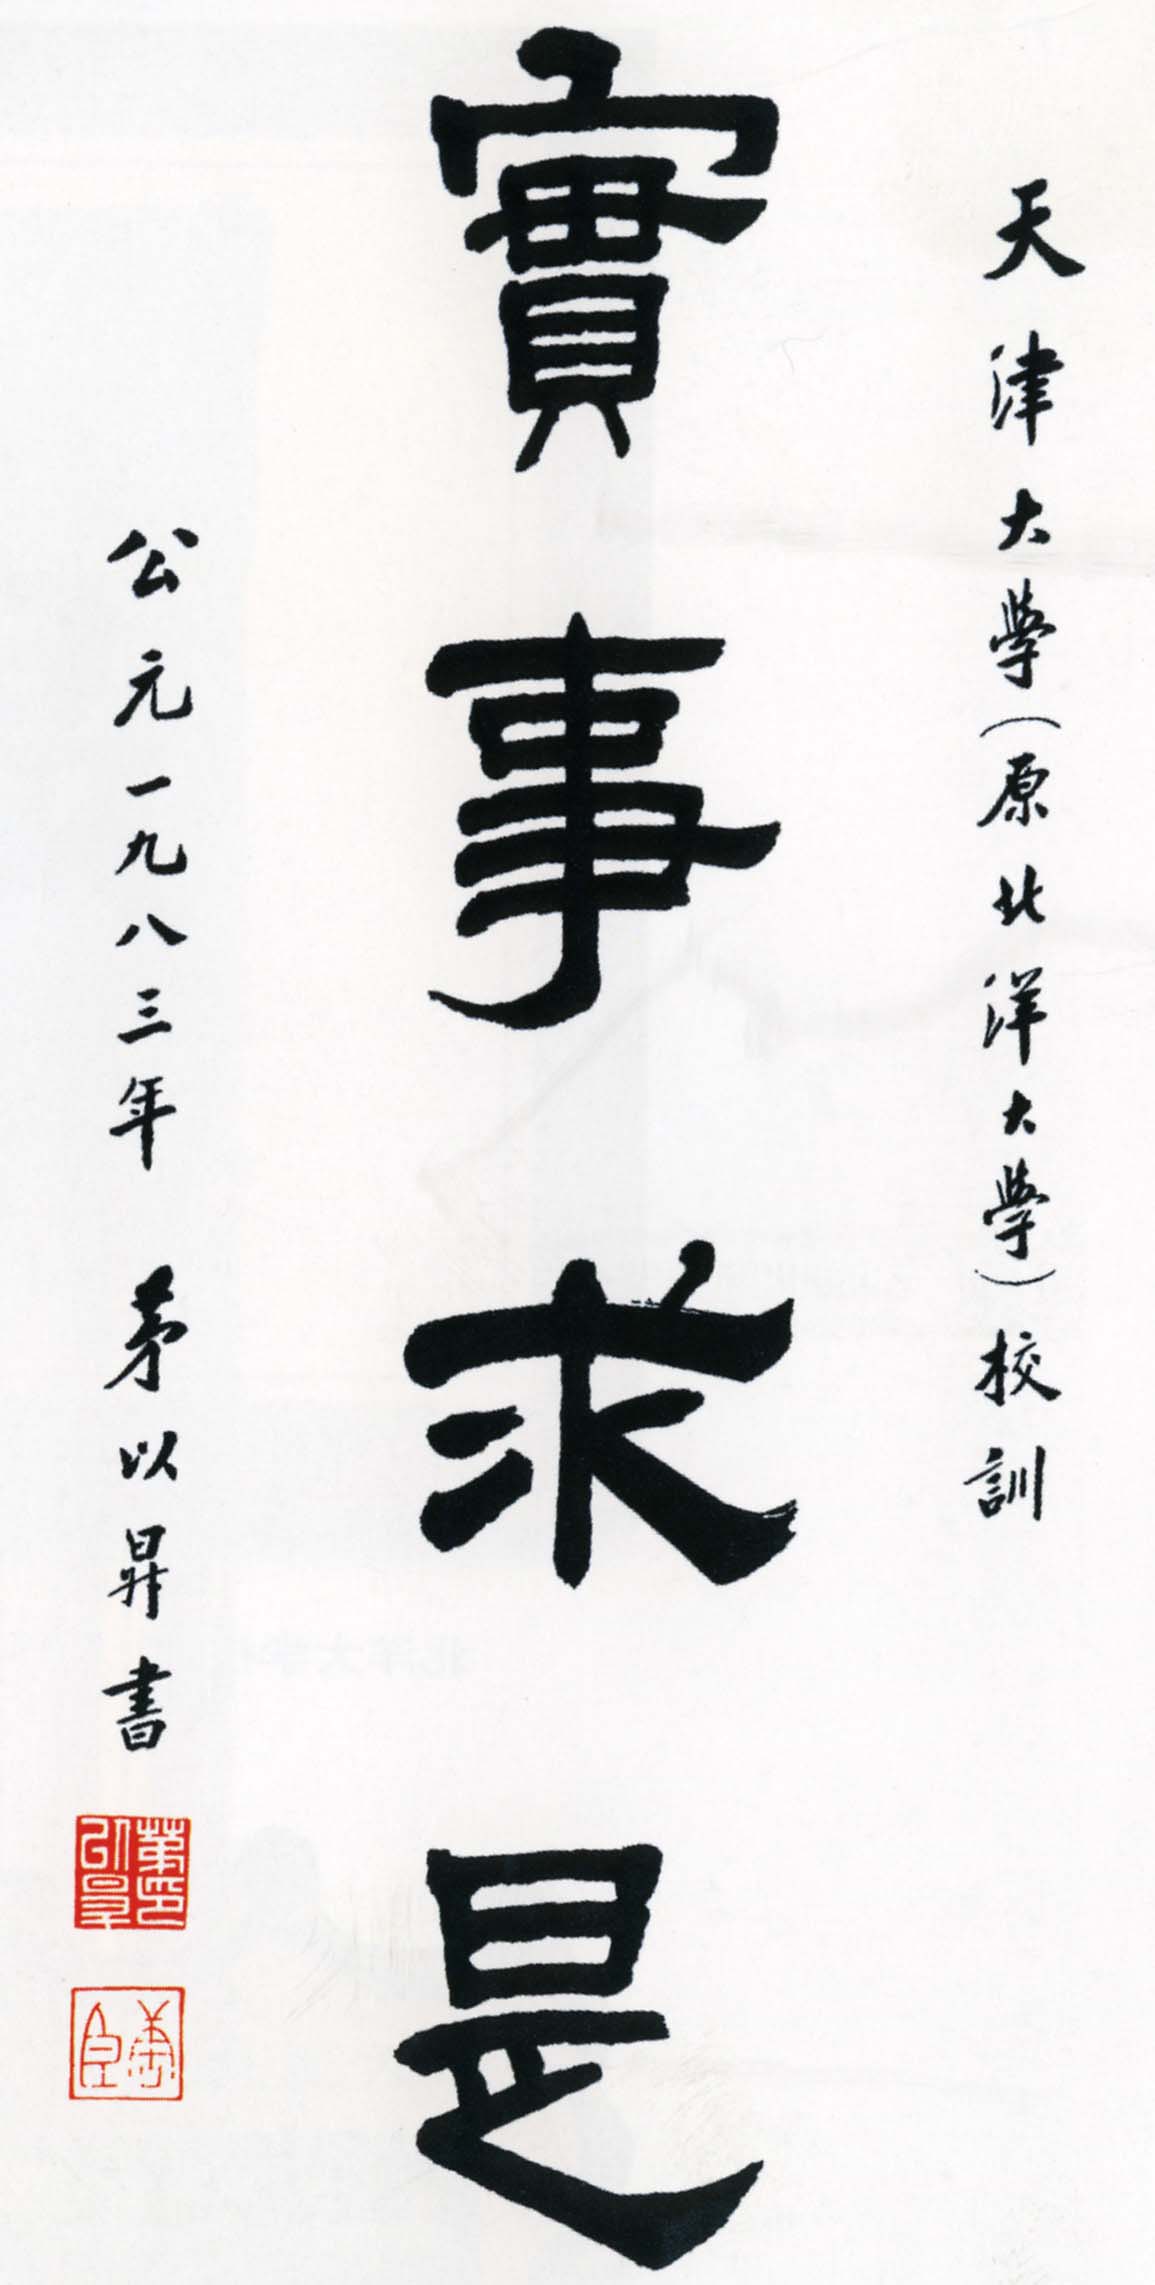 天津大學（原北洋大學）校訓
實事求是
公元一九八三年 茅以昇書